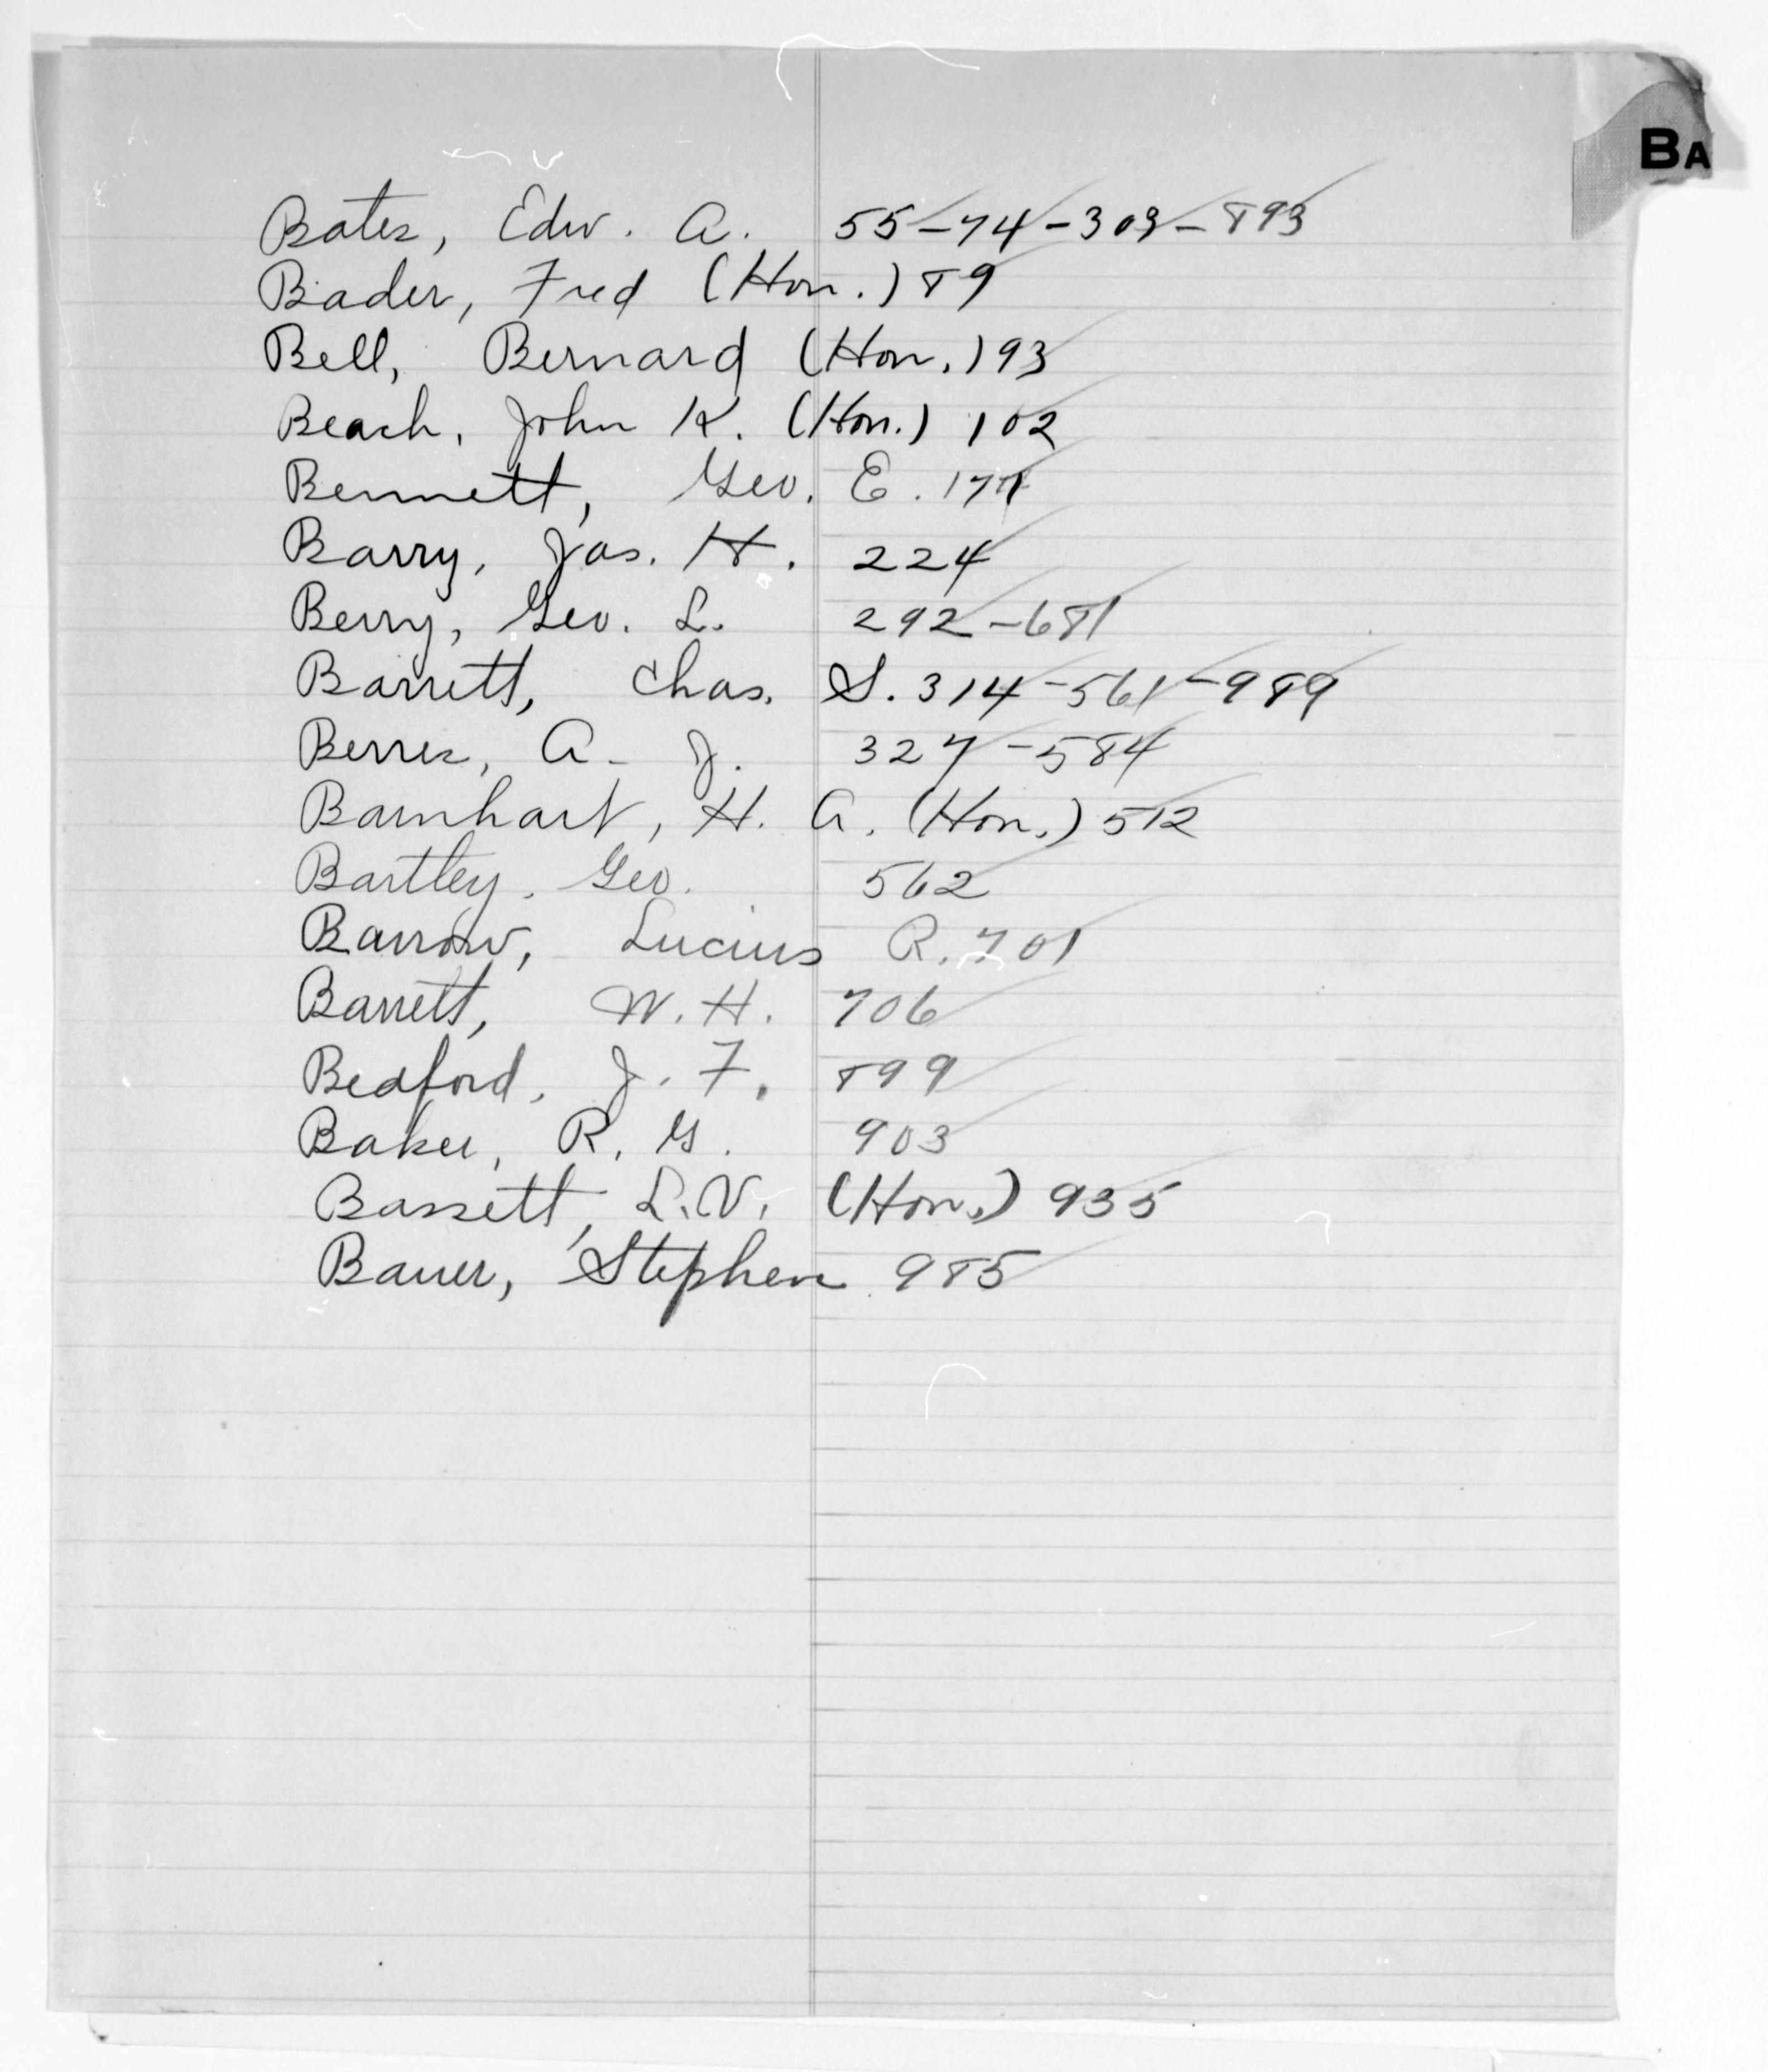 BA
Bates, Edw. A. 55-74-303-893
Bader, Fred (Hon.) 89
Bell, Bernard (Hon.) 93
Beach, John K. (Hon.) 102
Bennett, Geo. E.
Barry, Jas. H. 224
Berry, Geo. L. 292-681
Barrett, Chas. S. 314-561-989
Berres, A. J. 327-584
Barnhart, H. A. (Hon.) 512
Bartley, Geo. 562
Barrow, Lucius R. 701
Barrett, W. H. 706
Bedford, J. F. 899
Baker, R. G. 903
Bassett, L. V. (Hon.) 935
Bauer, Stephen 985